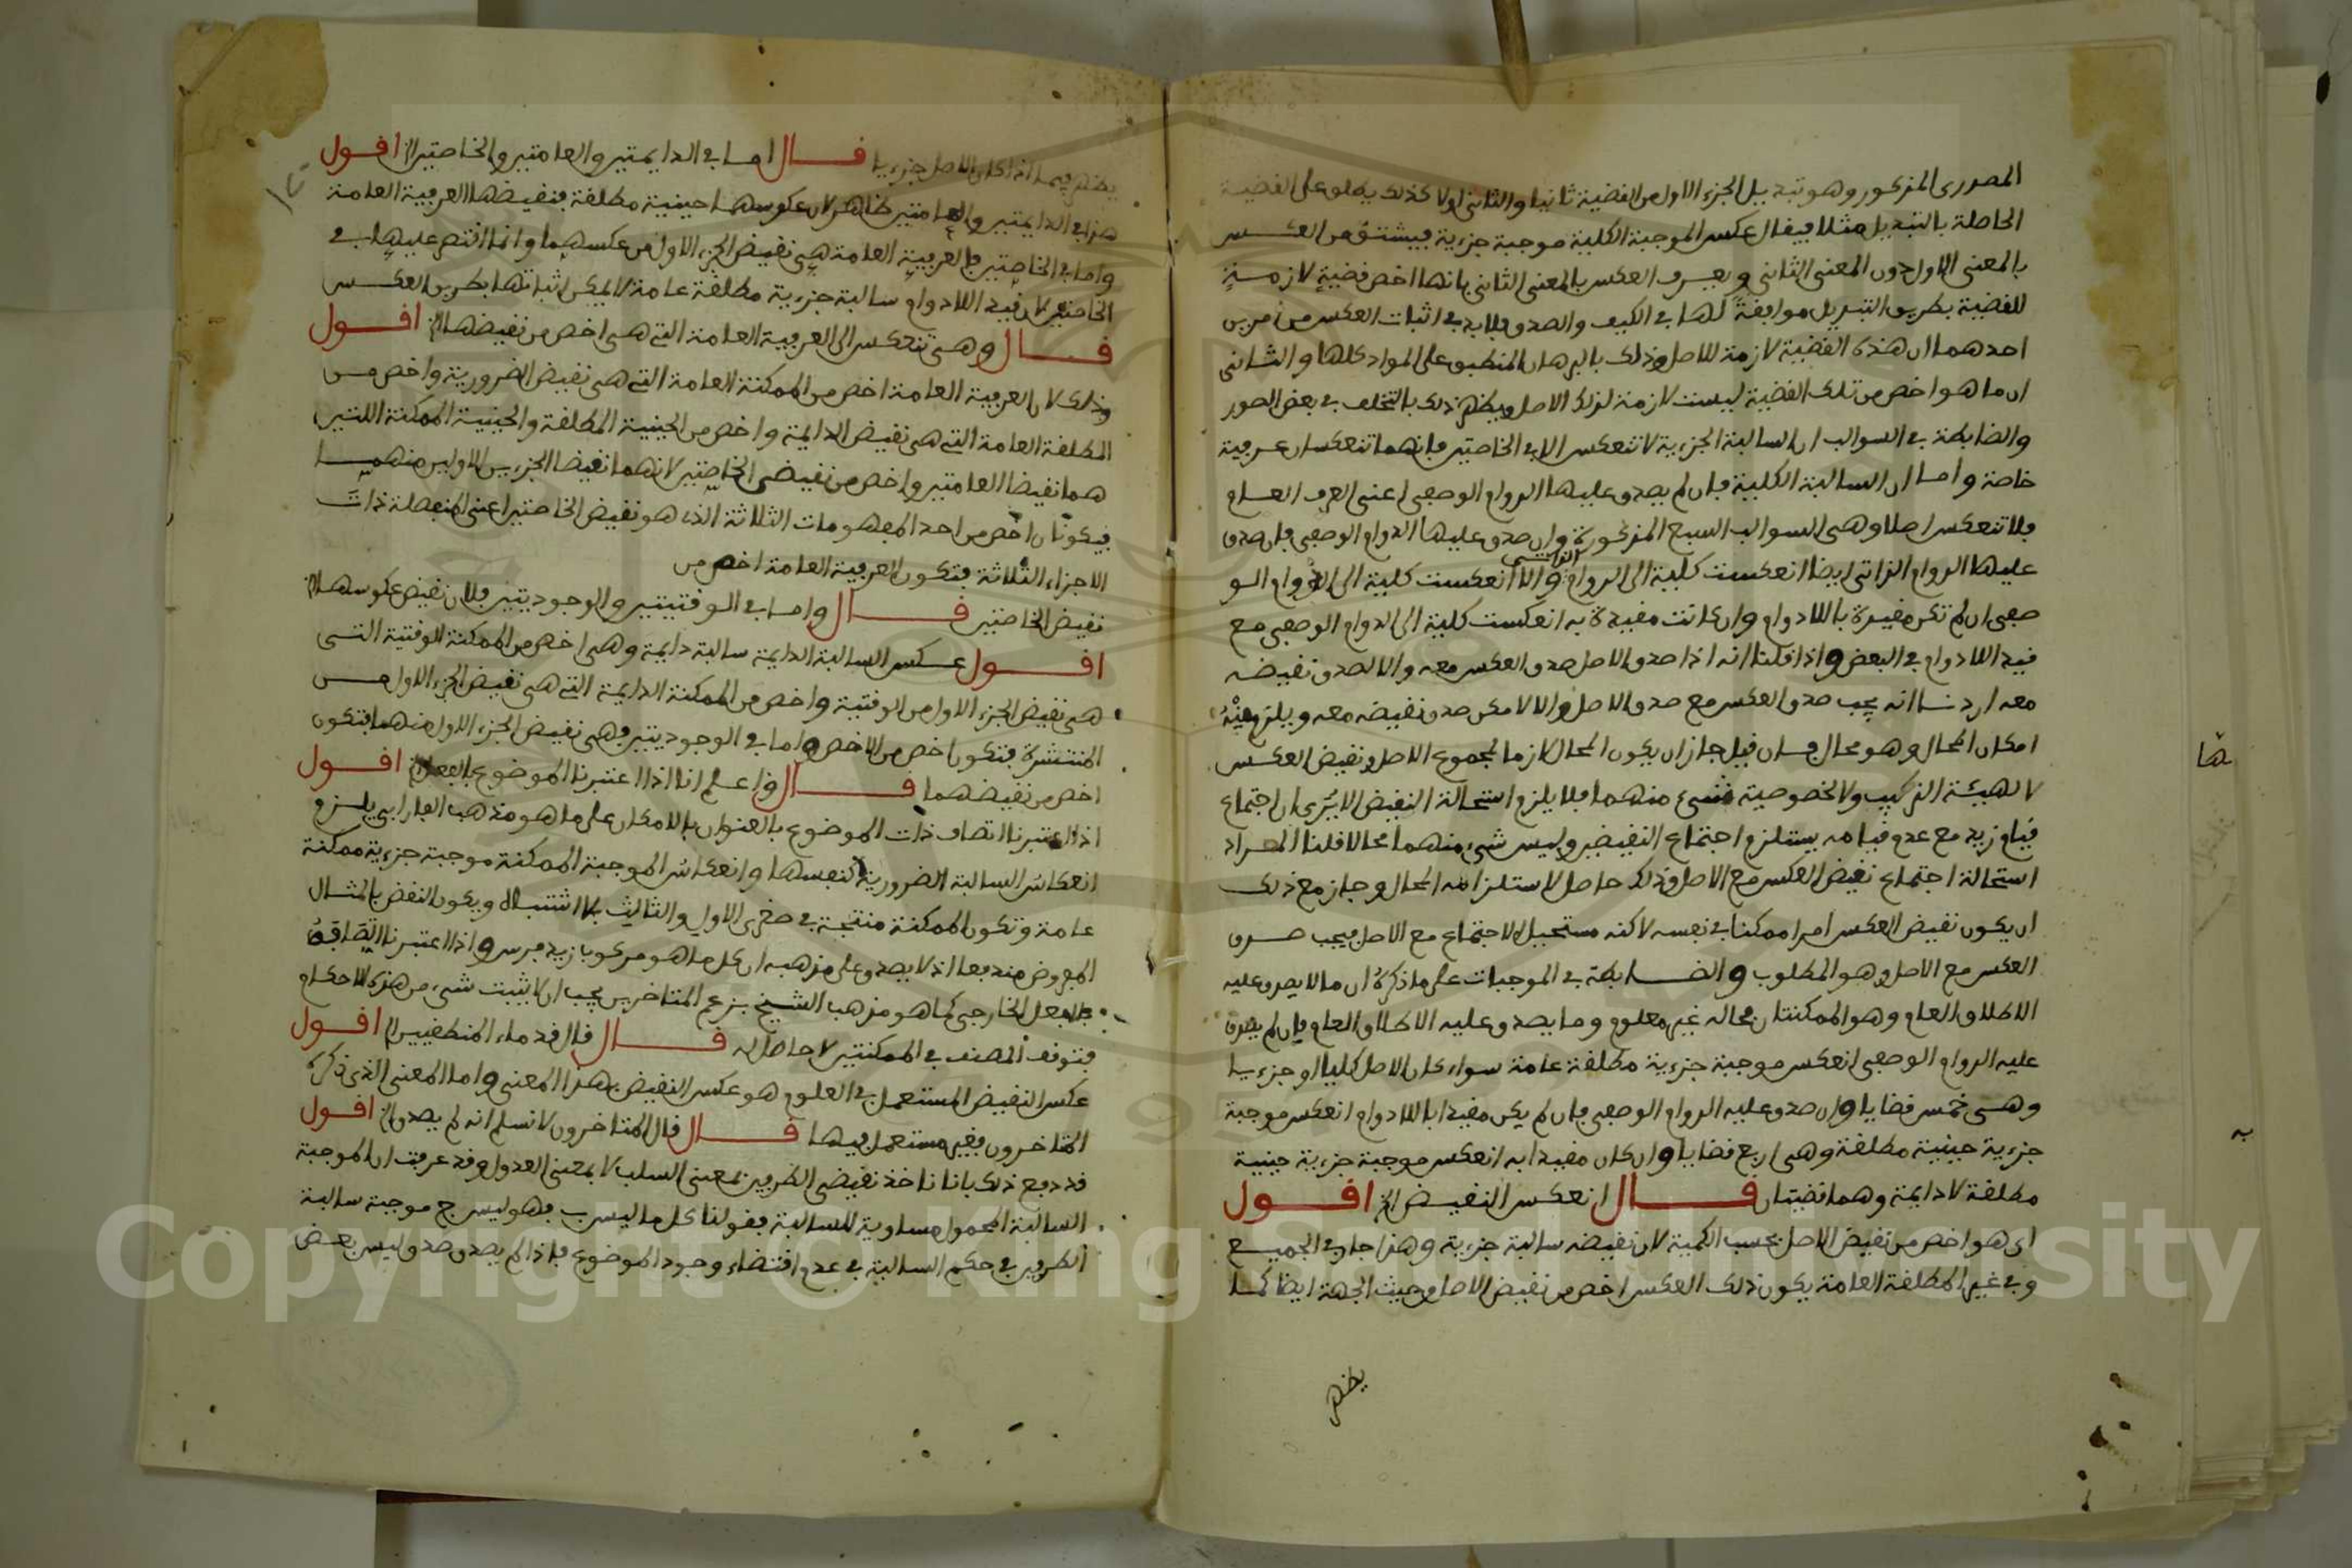 المصدري المذكور وهو تبديل الجزء الاول من القضية ثانيا والثاني اولا كذلك يطلق على القضية
الحاصلة بالتبديل مثلا فيقال عكس الموجبة الكلية موجبة جزءية فيشتق من العكس
بالمعنى الاول دون المعنى الثاني ويعرف العكس بالمعنى الثاني بانها اخص قضية لازمة
للقضية بطريق التبديل موافقة لها في الكيف والصدق فلابد في اثبات العكس من امرين
احدهما ان هذه القضية لازمة للاصل وذلك بالبرهان المنطبق على المواد كلها والثاني
ان ما هو اخص من تلك القضية ليست لازمة لذلك الاصل ويظهر ذلك بالتخلف في بعض الصور
والضابطة في السوالب ان السالبة الجزءية لا تنعكس الا في الخاصتين فانهما تنعكسان عرفية
خاصة واما ان السالبة الكلية فان لم يصدق عليها الدوام الوصفي اعني العرف العام
فلا تنعكس اصلا وهي السوالب السبع المذكورة وان صدق عليها الدوام الوصفي فان صدق
عليها الدوام الذاتي ايضا انعكست كلية الى الدوام الذاتي والا انعكست كلية الى الدوام الو
صفي ان لم تكن مقيدة باللادوام وان كانت مقيدة به انعكست كلية الى الدوام الوصفي مع
قيد اللادوام في البعض واذا قلنا انه اذا صدق الاصل صدق العكس معه والا لصدق نقيضه
معه اردنا انه يجب صدق العكس مع صدق الاصل والا لامكن صدق نقيضه معه ويلزم منه
امكان المحال وهو محال فان قيل جاز ان يكون المحال لازما لمجموع الاصل ونقيض العكس
لا لهيئة التركيب ولا لخصوصية شيء منهما فلا يلزم استحالة النقيض الا يرى ان اجتماع
قيام زيد مع عدم قيامه يستلزم اجتماع النقيضين وليس شيء منهما محالا قلنا المراد
استحالة اجتماع نقيض العكس مع الاصل وذلك حاصل لاستلزامه المحال وجاز مع ذلك
ان يكون نقيض العكس امرا ممكنا في نفسه لاكنه مستحيل الاجتماع مع الاصل فيجب صدق
العكس مع الاصل وهو المطلوب والضابطة في الموجبات على ما ذكره ان ما لا يصدق عليه
الاطلاق العام وهو الممكنتان فحاله غير معلوم وما يصدق عليه الاطلاق العام فان لم يصدق
عليه الدوام الوصفي انعكس موجبة جزءية مطلقة عامة سواء كان الاصل كليا او جزءيا
وهي خمس قضايا وان صدق عليه الدوام الوصفي فان لم يكن مقيدا باللادوام انعكس موجبة
جزءية حينية مطلقة وهي اربع قضايا وان كان مقيدا به انعكس موجبة جزءية حينية
مطلقة لا دايمة وهما قضيتان قـــال انعكس النقيض الخ اقـــول
اي هو اخص من نقيض الاصل بحسب الكمية لان نقيضه سالبة جزءية وهذا جار في الجميع
وفي غير المطلقة العامة يكون ذلك العكس اخص من نقيض الاصل من حيث الجهة ايضا كما
يظهر
يظهر فيما اذا كان الاصل جزءيا قـــال اما في الدايمتين والعامتين والخاصتين الخ اقـــول
هذا في الدايمتين والعامتين ظاهر لان عكوسهما حينية مطلقة فنقيضها العرفية العامة
واما في الخاصتين فالعرفية العامة هي نقيض الجزء الاول من عكسهما وانما اقتصر عليها في
الخاصتين لان قيد اللادوام سالبة جزءية مطلقة عامة لا يمكن اثباتها بطريق العكس
قـــال وهي تنعكس الى العرفية العامة التي هي اخص من نقيضها الخ اقـــول
وذلك لان العرفية العامة اخص من الممكنة العامة التي هي نقيض الضرورية واخص من
المطلقة العامة التي هي نقيض الدايمة واخص من الحينية المطلقة والحينية الممكنة اللتين
هما نقيضا العامتين واخص من نقيضي الخاصتين لانهما نقيضا الجزءين الاولين منهما
فيكونان اخص من احد المفهومات الثلاثة الذي هو نقيض الخاصتين اعني المنفصلة ذات
الاجزاء الثلاثة فتكون العرفية العامة اخص من
نقيض الخاصتين قـــال واما في الوقتيتين والوجوديتين فلان نقيض عكوسها الخ
اقـــول عكس السالبة الدايمة سالبة دايمة وهي اخص من الممكنة الوقتية التي
هي نقيض الجزء الاول من الوقتية واخص من الممكنة الدايمة التي هي نقيض الجزء الاول من
المنتشرة فتكون اخص من الاخص واما في الوجوديتين فهي نقيض الجزء الاول منهما فتكون
اخص من نقيضهما قـــال واعلم انا اذا اعتبرنا الموضوع بالفعل الخ اقـــول
اذا اعتبرنا اتصاف ذات الموضوع بالعنوان بالامكان على ما هو مذهب الفارابي يلزم
انعكاس السالبة الضرورية لنفسها وانعكاس الموجبة الممكنة موجبة جزءية ممكنة
عامة وتكون الممكنة منتجة في صغرى الاول والثالث بلا اشتباه ويكون النقض بالمثال
المفروض مندفعا اذ لا يصدق على مذهبه ان كل ما هو مركوب زيد فرس واذا اعتبرنا اتصافه
بالفعل الخارجي كما هو مذهب الشيخ بزعم المتاخرين يجب ان لا يثبت شيء من هذه الاحكام
فتوقف المصنف في الممكنتين لا حاصل له قـــال قال قدماء المنطقيين الخ اقـــول
عكس النقيض المستعمل في العلوم هو عكس النقيض بهذا المعنى واما المعنى الذي ذكره
المتاخرون فغير مستعمل فيها قـــال قال المتاخرون لا نسلم انه لم يصدق الخ اقـــول
قد دفع ذلك بانا ناخذ نقيضي الطرفين بمعنى السلب لا بمعنى العدول وقد عرفت ان الموجبة
السالبة المحمول مساوية للسالبة فقولنا كل ما ليس ب فهو ليس ج موجبة سالبة
الطرفين في حكم السالبة في عدم اقتضاء وجود الموضوع فاذا لم يصدق صدق ليس بعض
Copyright © King Saud University